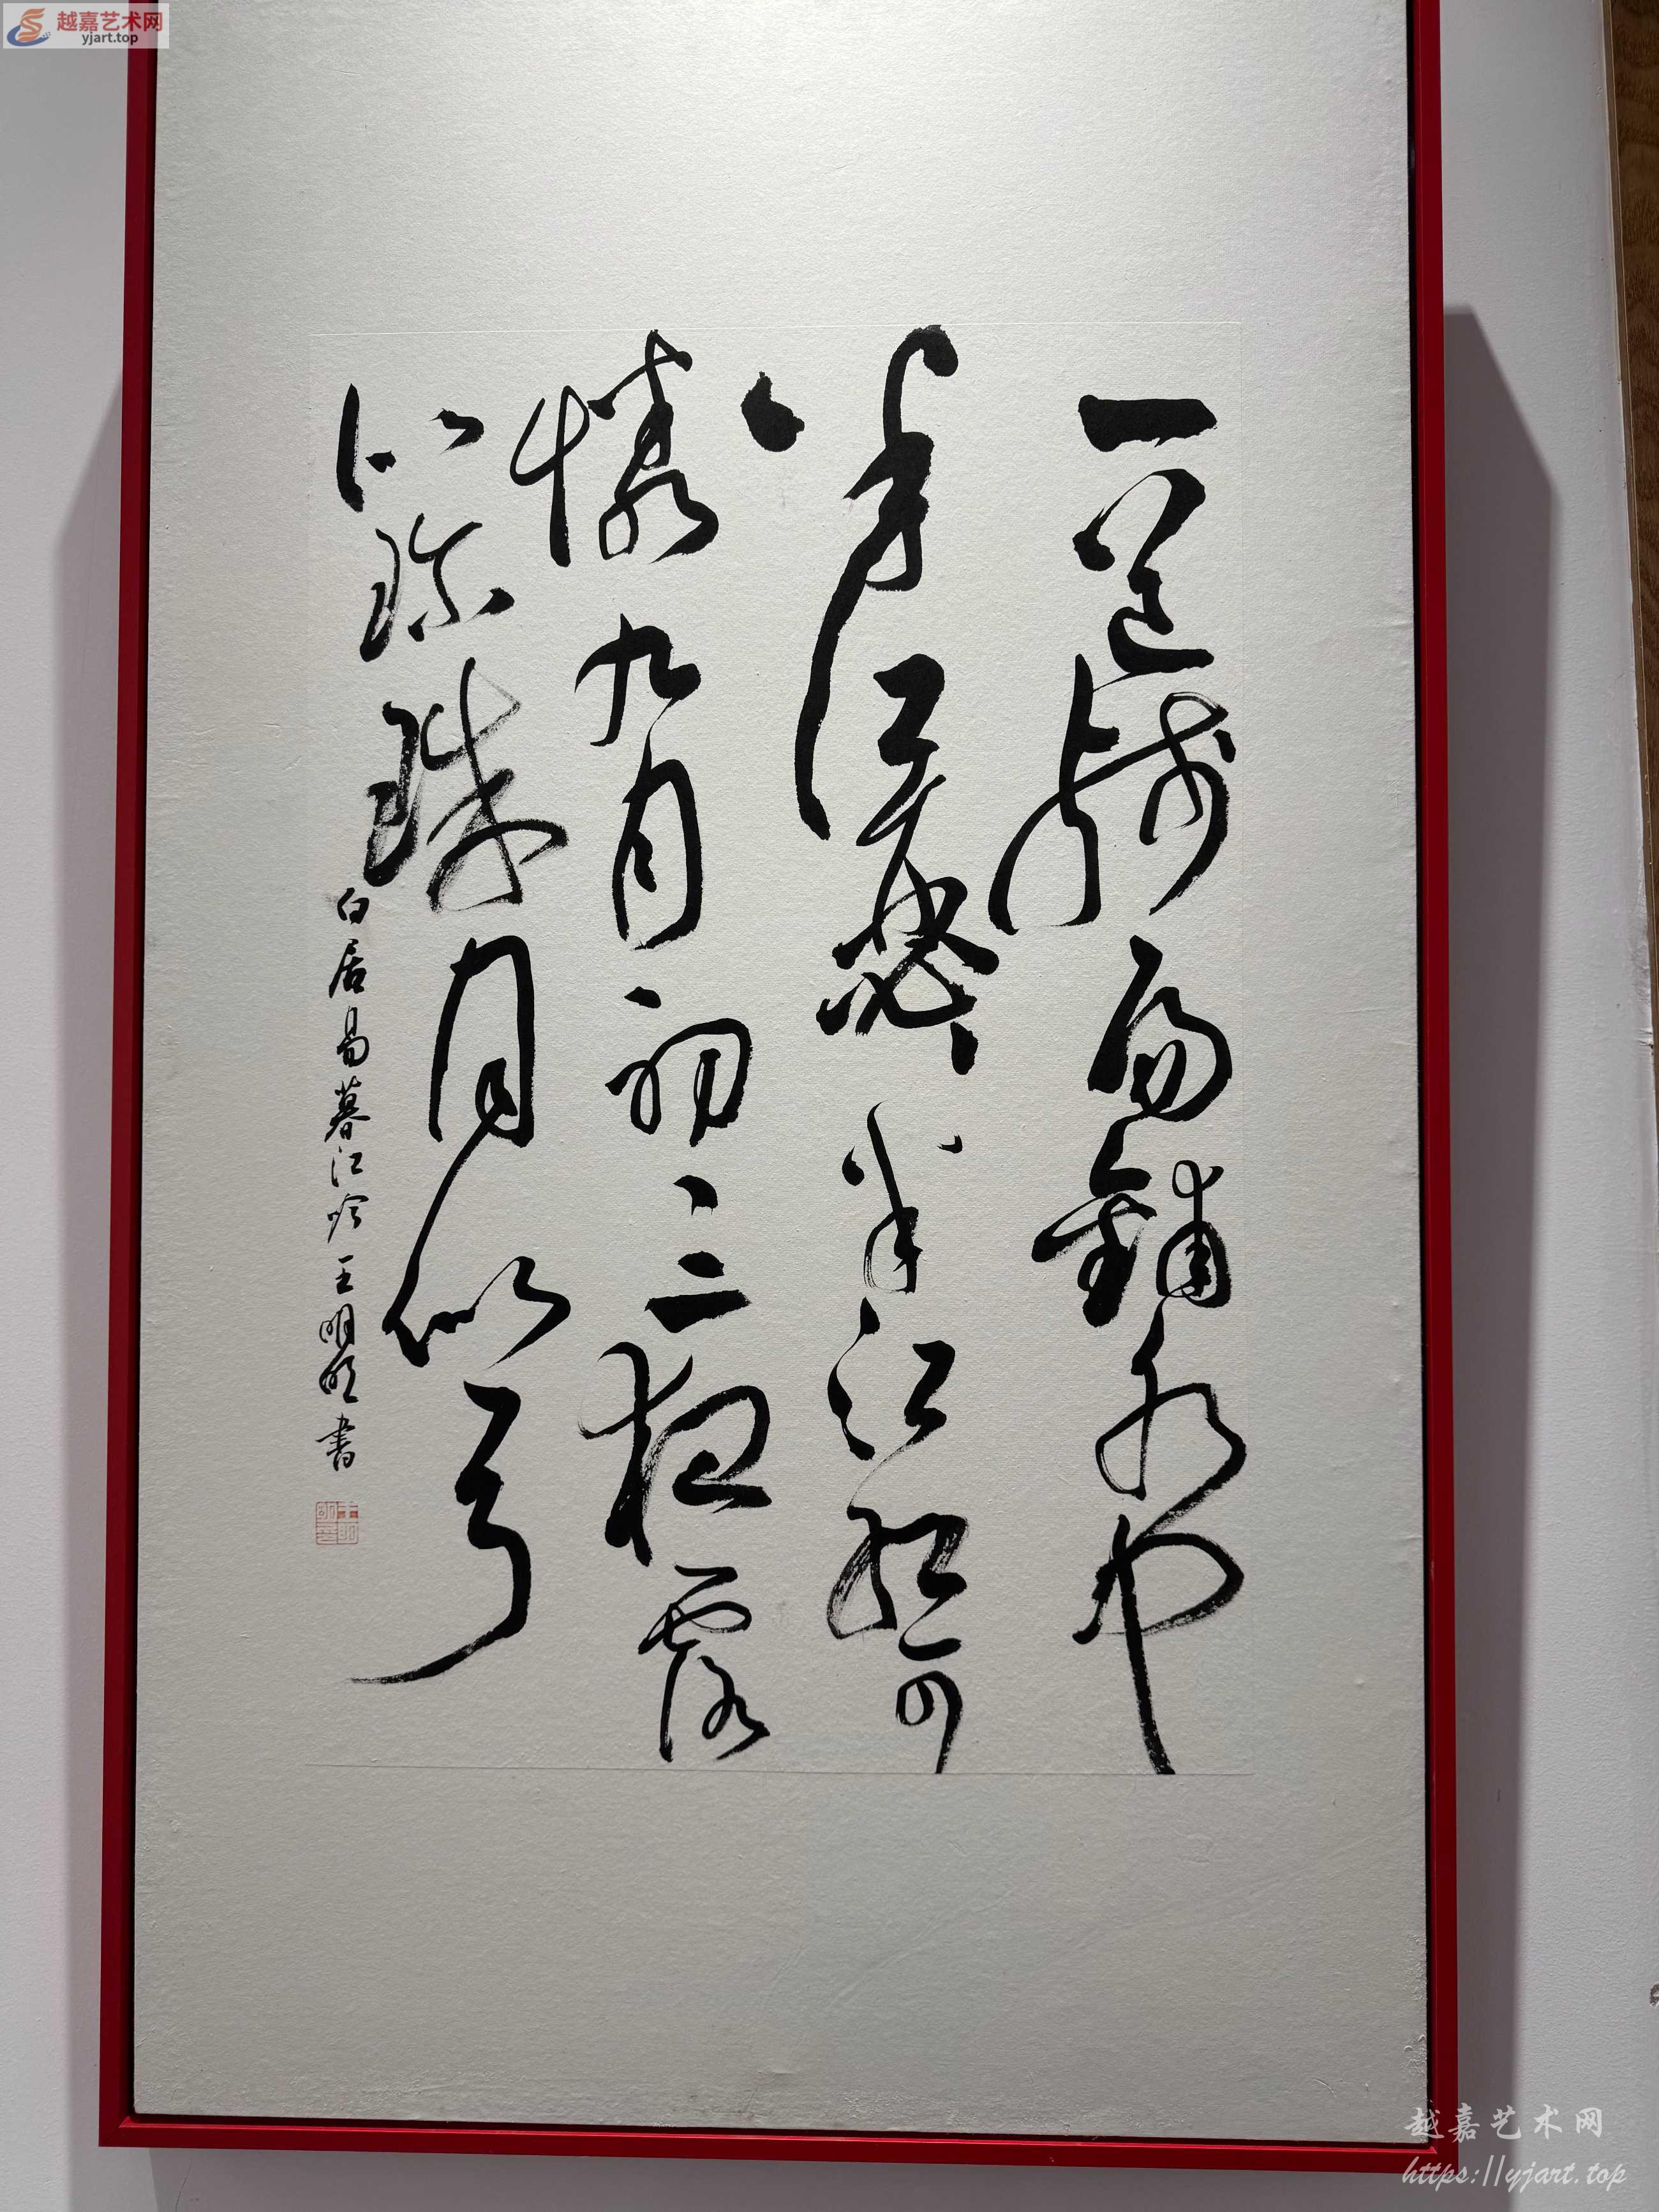 越嘉艺术网
yjart.top
一道殘陽鋪水中
半江瑟瑟半江紅可
憐九月初三夜露
似珍珠月似弓
白居易暮江吟 王明明書
越嘉艺术网
https://yjart.top